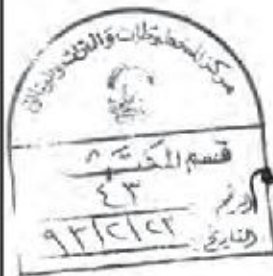 مركز المخطوطات والتراث والوثائق
قسم المكتبة
الرقم ٤٣
التاريخ ٩٣/٢/٢٣